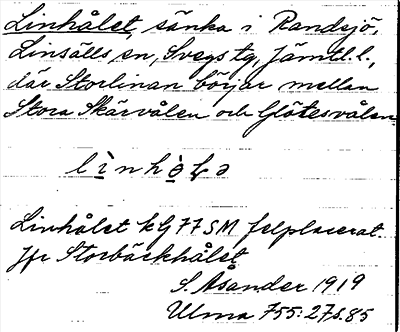 Linhålet, sänka i Randsjö,
Linsälls sn, Svegs tg, Jämtl. l.,
där Storlinan börjar mellan
Stora Skärvålen och Glötesvålen
Linhålet kG 77 SM felplacerat.
Jfr Storbäckhålet
S. Åsander 1919
Ulma 755:27 s. 85